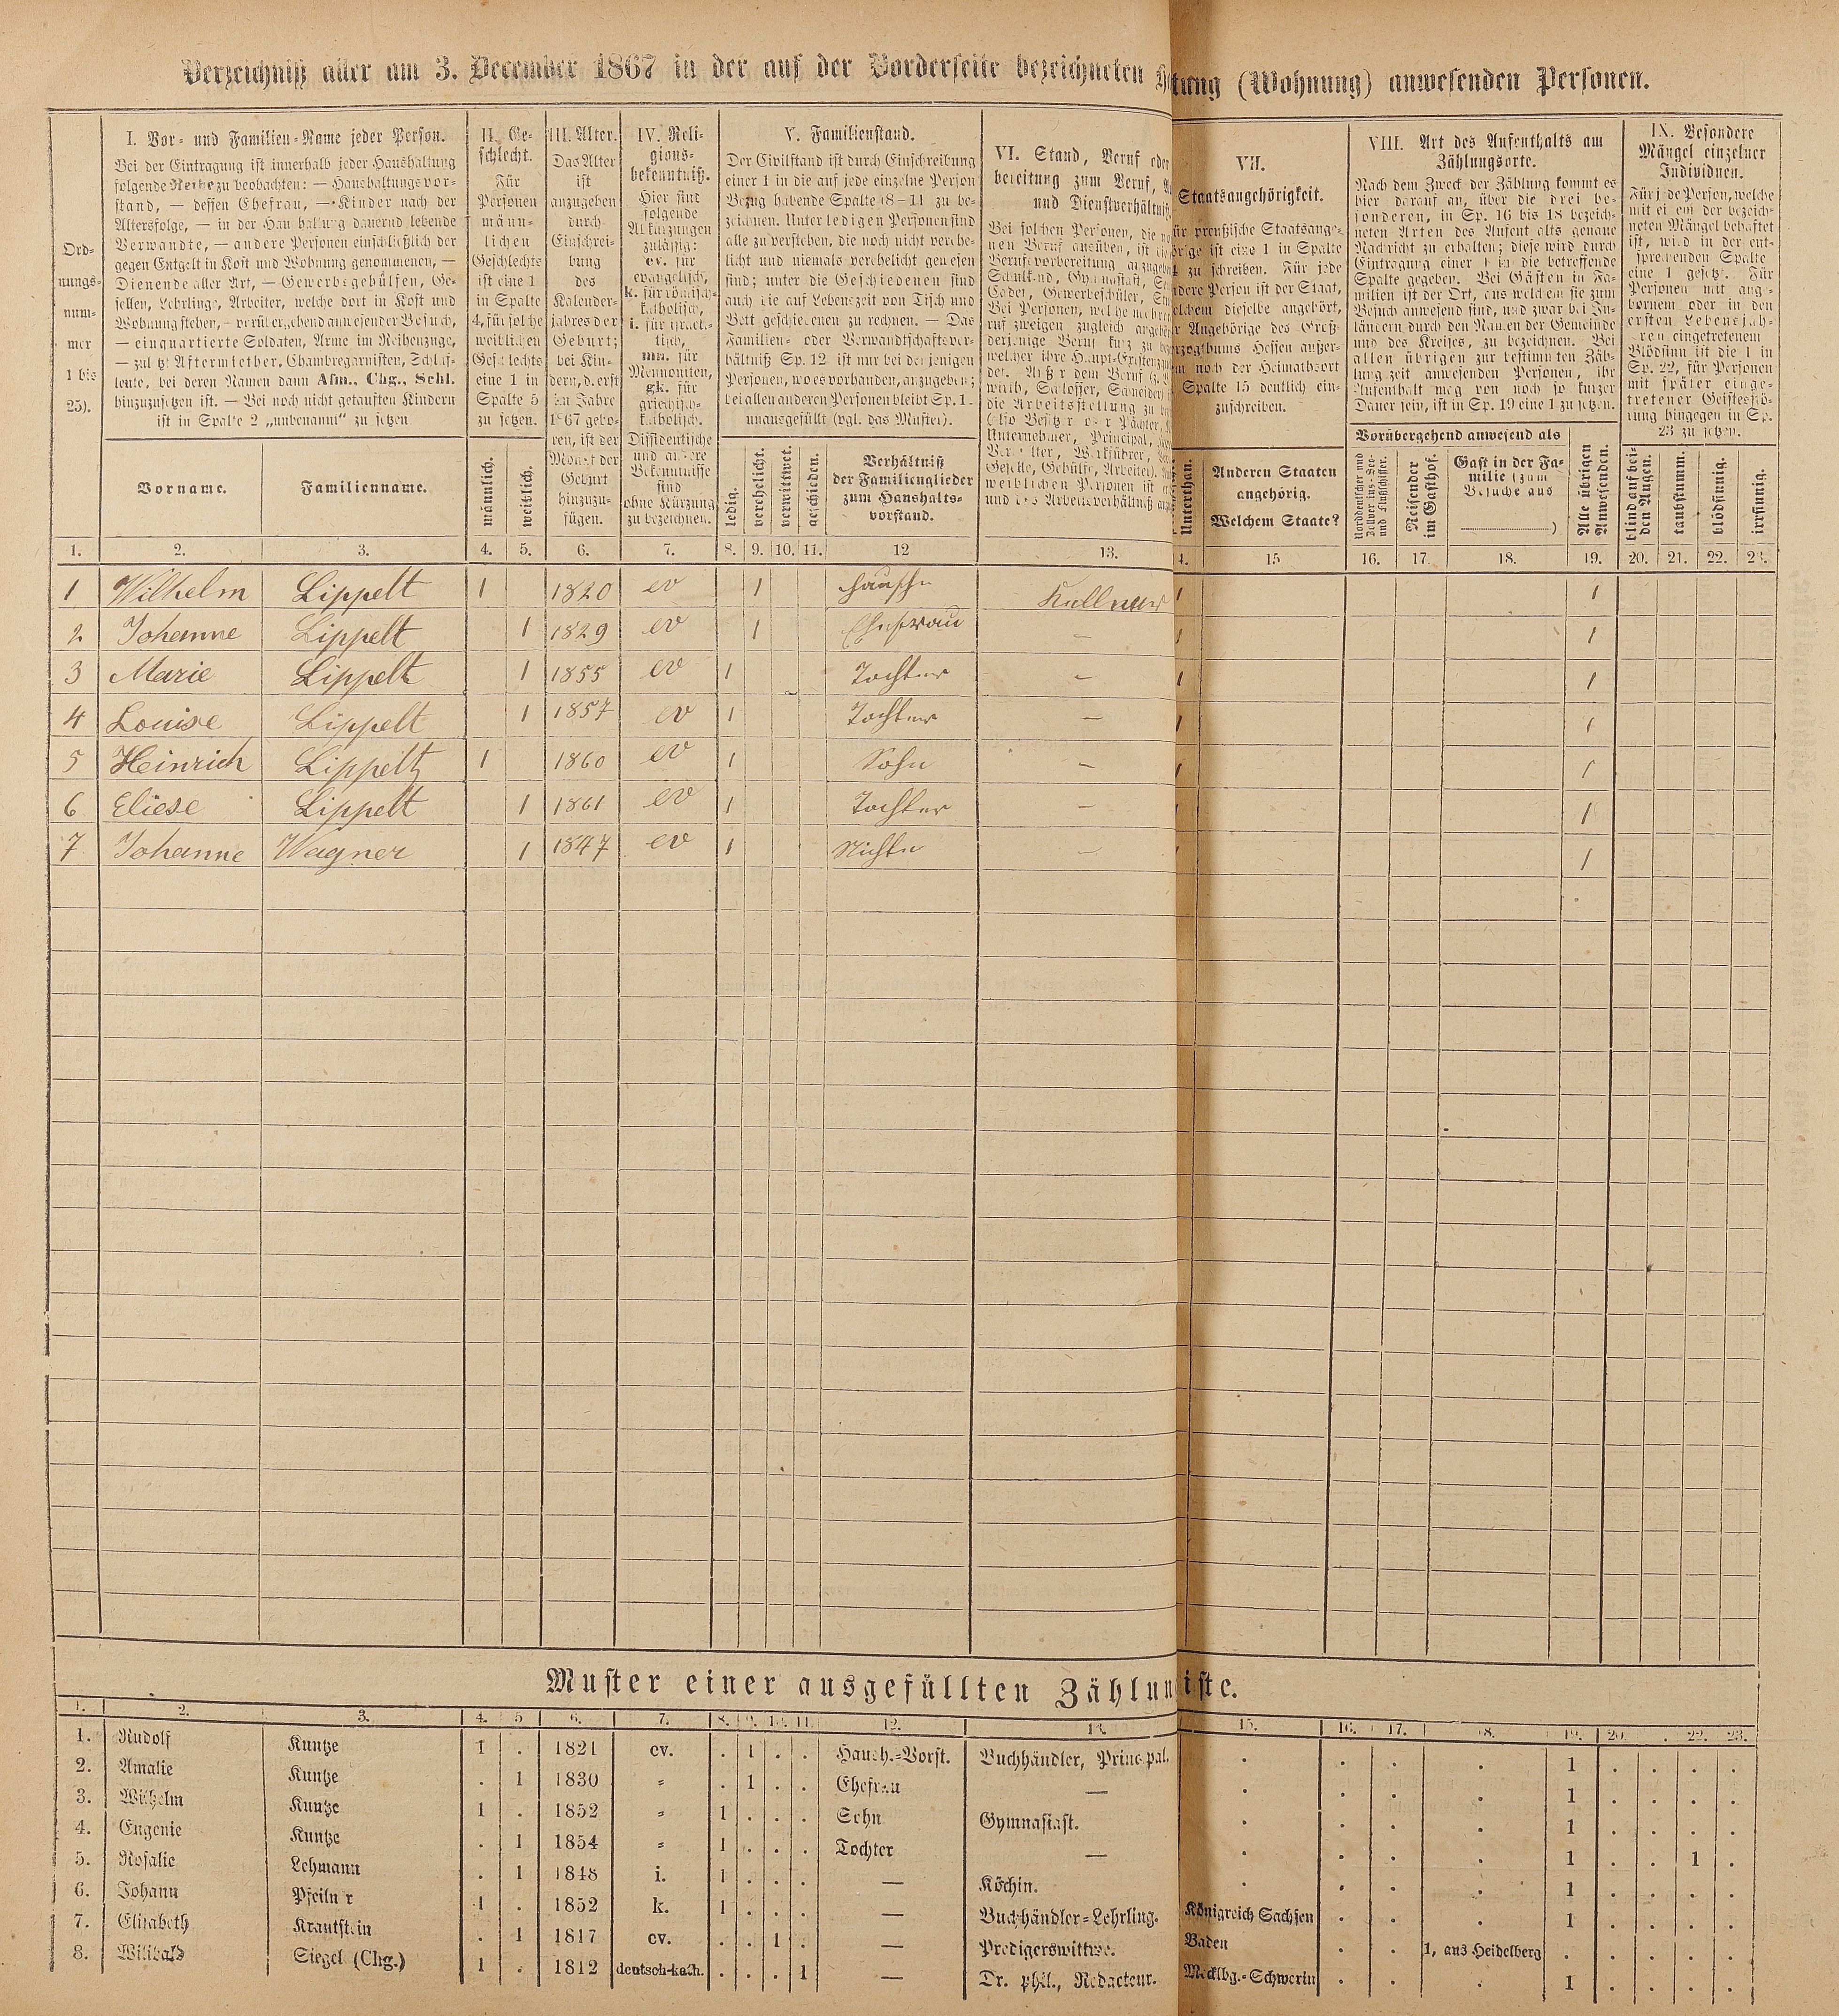 Verzeichniß aller am 3. December 1867 in der auf der Vorderseite bezeichneten tung (Wohnung) anwesenden Personen.
Ord-
nungs-
num-
mer
1 bis
25).
I. Vor- und Familien-Name jeder Person.
Bei der Eintragung ist innerhalb jeder Haushaltung
folgende Reihe zu beobachten: — Haushaltungsvor-
stand, — dessen Ehefrau, — Kinder nach der
Altersfolge, — in der Haushaltung dauernd lebende
Verwandte, — andere Personen einschließlich der
gegen Entgelt in Kost und Wohnung genommenen, —
Dienende aller Art, — Gewerbsgehülfen, Ge-
sellen, Lehrlinge, Arbeiter, welche dort in Kost und
Wohnung stehen, — vorübergehend anwesender Besuch,
— einquartierte Soldaten, Arme im Reihenzuge,
— zuletzt Aftermiether, Chambregarnisten, Schlaf-
leute, bei deren Namen dann Afm., Chg., Schl.
hinzuzusetzen ist. — Bei noch nicht getauften Kindern
ist in Spalte 2 „unbenannt“ zu setzen
Vorname.
Familienname.
II. Ge-
schlecht.
Für
Personen
männ-
lichen
Geschlechts
ist eine 1
in Spalte
4, für solche
weiblichen
Geschlechts
eine 1 in
Spalte 5
zu setzen.
männlich.
weiblich.
III. Alter.
Das Alter
ist
anzugeben
durch
Einschrei-
bung
des
Kalender-
jahres der
Geburt;
bei Kin-
dern, d. erst
im Jahre
1867 gebo-
ren, ist der
Monat der
Geburt
hinzuzu-
fügen.
IV. Reli-
gions-
bekenntniß.
Hier sind
folgende
Abkürzungen
zulässig:
ev. für
evangelisch,
k. für römisch-
katholisch,
i. für israeli-
tisch,
mn. für
Mennoniten,
gk. für
griechisch-
katholisch.
Dissidentische
und andere
Bekenntnisse
sind
ohne Kürzung
zu bezeichnen.
V. Familienstand.
Der Civilstand ist durch Einschreibung
einer 1 in die auf jede einzelne Person
Bezug habende Spalte (8–11 zu be-
zeichnen. Unter ledigen Personen sind
alle zu verstehen, die noch nicht verehe-
licht und niemals verehelicht gewesen
sind; unter die Geschiedenen sind
auch die auf Lebenszeit von Tisch und
Bett geschiedenen zu rechnen. — Das
Familien- oder Verwandtschaftsver-
hältniß Sp. 12 ist nur bei denjenigen
Personen, wo es vorhanden, anzugeben;
bei allen anderen Personen bleibt Sp. 1
unausgefüllt (vgl. das Muster).
ledig.
verehelicht.
verwittwet.
geschieden.
Verhältniß
der Familienglieder
zum Haushalts-
vorstand.
VI. Stand, Beruf oder
bereitung zum Beruf,
und Dienstverhältniß
Bei solchen Personen, die
nen Beruf ausüben, ist
Berufsvorbereitung anzugeben
Schulkind, Gymnasiast,
Cadet, Gewerbeschüler,
Bei Personen, welche mehrere
ruf zweigen zugleich
derjenige Beruf kurz zu
welcher ihre Haupt-Existenz
det. Außer dem Beruf
wirth, Schlosser, Schneider
die Arbeitsstellung zu
(also Besitzer oder Pächter,
Unternehmer, Principal,
Verwalter, Werkführer,
Geselle, Gehülfe, Arbeiter).
weiblichen Personen ist
und das Arbeitsverhältniß
VII.
Staatsangehörigkeit.
ür preußische Staatsange-
örige ist eine 1 in Spalte
zu schreiben. Für jede
ndere Person ist der Staat,
elchem dieselbe angehört,
r Angehörige des Groß-
rzogthums Hessen außer-
m noch der Heimathsort
Spalte 15 deutlich ein-
zuschreiben.
Unterthan.
Anderen Staaten
angehörig.
Welchem Staate?
VIII. Art des Aufenthalts am
Zählungsorte.
Nach dem Zweck der Zählung kommt es
hier darauf an, über die drei be-
sonderen, in Sp. 16 bis 18 bezeich-
neten Arten des Aufenthalts genaue
Nachricht zu erhalten; diese wird durch
Eintragung einer 1 in die betreffende
Spalte gegeben. Bei Gästen in Fa-
milien ist der Ort, aus welchem sie zum
Besuch anwesend sind, und zwar bei In-
ländern durch den Namen der Gemeinde
und des Kreises, zu bezeichnen. Bei
allen übrigen zur bestimmten Zäh-
lungszeit anwesenden Personen, ihr
Aufenthalt mag von noch so kurzer
Dauer sein, ist in Sp. 19 eine 1 zu setzen.
Vorübergehend anwesend als
Norddeutscher und
Zollver ins-See-
und Flußschiffer.
Reisender
im Gasthof.
Gast in der Fa-
milie (zum
Besuche aus
)
Alle übrigen
Anwesenden.
IX. Besondere
Mängel einzelner
Individuen.
Für jede Person, welche
mit einem der bezeich-
neten Mängel behaftet
ist, wird in der ent-
sprechenden Spalte
eine 1 gesetzt. Für
Personen mit ange-
bornem oder in den
ersten Lebensjah-
ren eingetretenem
Blödsinn ist die 1 in
Sp. 22, für Personen
mit später einge-
tretener Geistesstö-
rung hingegen in Sp.
23 zu setzen.
blind auf bei-
den Augen.
taubstumm.
blödsinnig.
irrsinnig.
1. 2. 3. 4. 5. 6. 7. 8. 9. 10. 11. 12 13. 4. 15 16. 17. 18. 19. 20. 21. 22. 23.
1 Wilhelm Lippelt 1 1820 ev 1 Kellner 1 1
2 Johanne Lippelt 1 1829 ev 1 Ehefrau – 1 1
3 Marie Lippelt 1 1855 ev 1 Tochter – 1 1
4 Louise Lippelt 1 1857 ev 1 Tochter – 1 1
5 Heinrich Lippelt 1 1860 ev 1 Sohn – 1 1
6 Eliese Lippelt 1 1861 ev 1 Tochter – 1 1
7 Johanne Wagner 1 1847 ev 1 Nichte – 1 1
Muster einer ausgefüllten Zählun iste.
1. 2. 3. 4. 5 6. 7. 8. 9. 10. 11. 12. 13. 15. 16. 17. 18. 19. 20 . 22. 23.
1. Rudolf Kuntze 1 . 1821 ev. . 1 . . Haush.-Vorst. Buchhändler, Principal. . . . . 1 . . . .
2. Amalie Kuntze . 1 1830 " . 1 . . Ehefrau — . . . . 1 . . . .
3. Wilhelm Kuntze 1 . 1852 " 1 . . . Sohn Gymnasiast. . . . . 1 . . . .
4. Eugenie Kuntze . 1 1854 " 1 . . . Tochter — . . . . 1 . . 1 .
5. Rosalie Lehmann . 1 1848 i. 1 . . . — Köchin. . . . . 1 . . . .
6. Johann Pfeiln r 1 . 1852 k. 1 . . . — Buchhändler-Lehrling. Königreich Sachsen . . . 1 . . . .
7. Elisabeth Krautstein . 1 1817 ev. . . 1 . — Predigerswittwe. Baden . . 1, aus Heidelberg . . . . .
8. Wilibald Siegel (Chg.) 1 . 1812 deutsch-kath. . . . 1 — Dr. phil., Redacteur. Mecklbg.-Schwerin . . . 1 . . . .